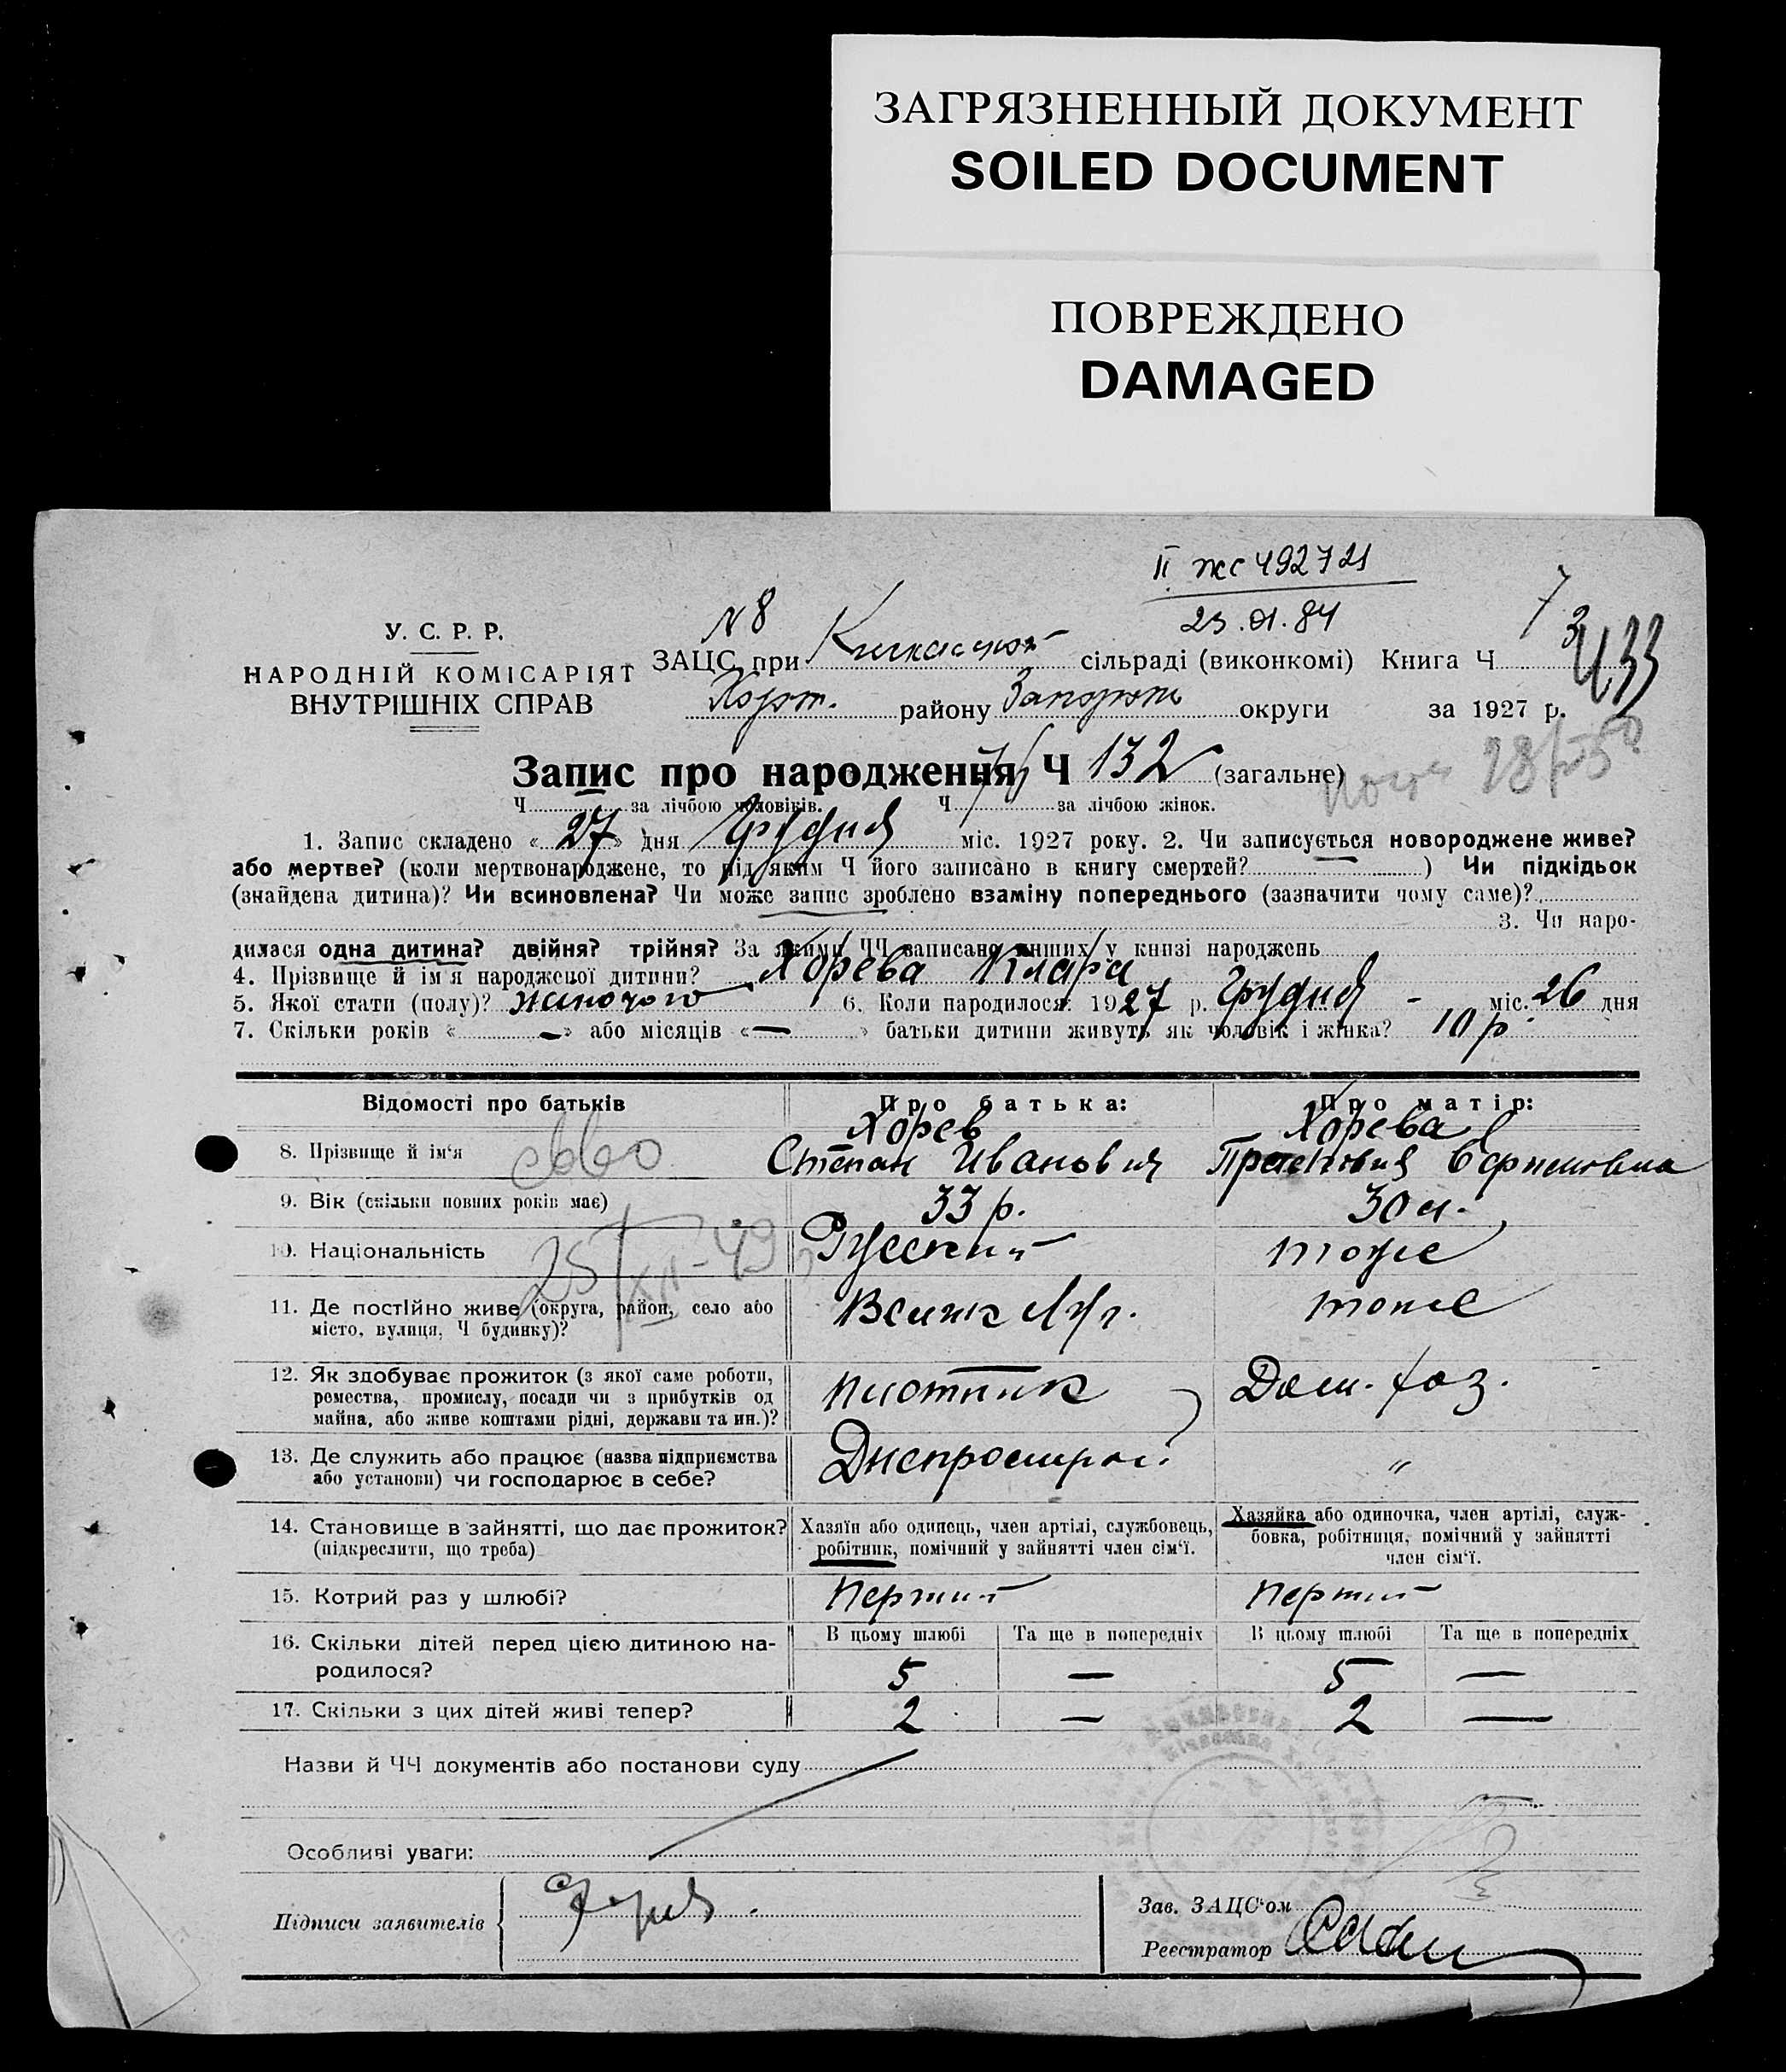 ЗАГРЯЗНЕННЫЙ ДОКУМЕНТ
SOILED DOCUMENT
ПОВРЕЖДЕНО
DAMAGED
II жс 492721
23.01.84
N 8
У. С. Р. Р.
НАРОДНІЙ КОМІСАРІЯТ
ВНУТРІШНІХ СПРАВ
ЗАЦС при Кичкаської сільраді (виконкомі) Книга Ч 3
433
Хорт. району Запоріж округи за 1927 р.
Запис про народження Ч 132 (загальне)
Ч за лічбою чоловіків. Ч за лічбою жінок.
1. Запис складено « 27 » дня Грудня міс. 1927 року. 2. Чи записується новороджене живе?
або мертве? (коли мертвонароджене, то під яким Ч його записано в книгу смертей? — ) Чи підкідьок
(знайдена дитина)? Чи всиновлена? Чи може запис зроблено взаміну попереднього (зазначити чому саме)?
3. Чи наро-
дилася одна дитина? двійня? трійня? За якими ЧЧ записано инших у книзі народжень
4. Прізвище й ім'я народженої дитини? Хорева Клара
5. Якої стати (полу)? жиночого 6. Коли народилося: 1927 р. Грудня - міс. 26 дня
7. Скільки років « — » або місяців « — » батьки дитини живуть як чоловік і жінка? 10 р.
Відомості про батьків Про батька: Про матір:
8. Прізвище й ім'я Хорев Степан Иванович Хорева
9. Вік (скільки повних років має) 33 р. 30 л.
10. Національність Русский тоже
25/XII-49
11. Де постійно живе (округа, район, село або
місто, вулиця, Ч будинку)? Велик Луг. тоже
12. Як здобуває прожиток (з якої саме роботи,
ремества, промислу, посади чи з прибутків од
майна, або живе коштами рідні, держави та ин.)? плотник Дом. хоз.
13. Де служить або працює (назва підприємства
або установи) чи господарює в себе? Днепрострой "
14. Становище в зайнятті, що дає прожиток?
(підкреслити, що треба)
Хазяїн або одинець, член артілі, службовець,
робітник, помічний у зайнятті член сім'ї.
Хазяйка або одиночка, член артілі, служ-
бовка, робітниця, помічний у зайнятті
член сім'ї.
15. Котрий раз у шлюбі? Перший Перший
16. Скільки дітей перед цією дитиною на-
родилося?
В цьому шлюбі Та ще в попередніх В цьому шлюбі Та ще в попередніх
5 — 5 —
17. Скільки з цих дітей живі тепер? 2 — 2 —
Назви й ЧЧ документів або постанови суду
Особливі уваги:
Підписи заявителів
Зав. ЗАЦС'ом
Реєстратор